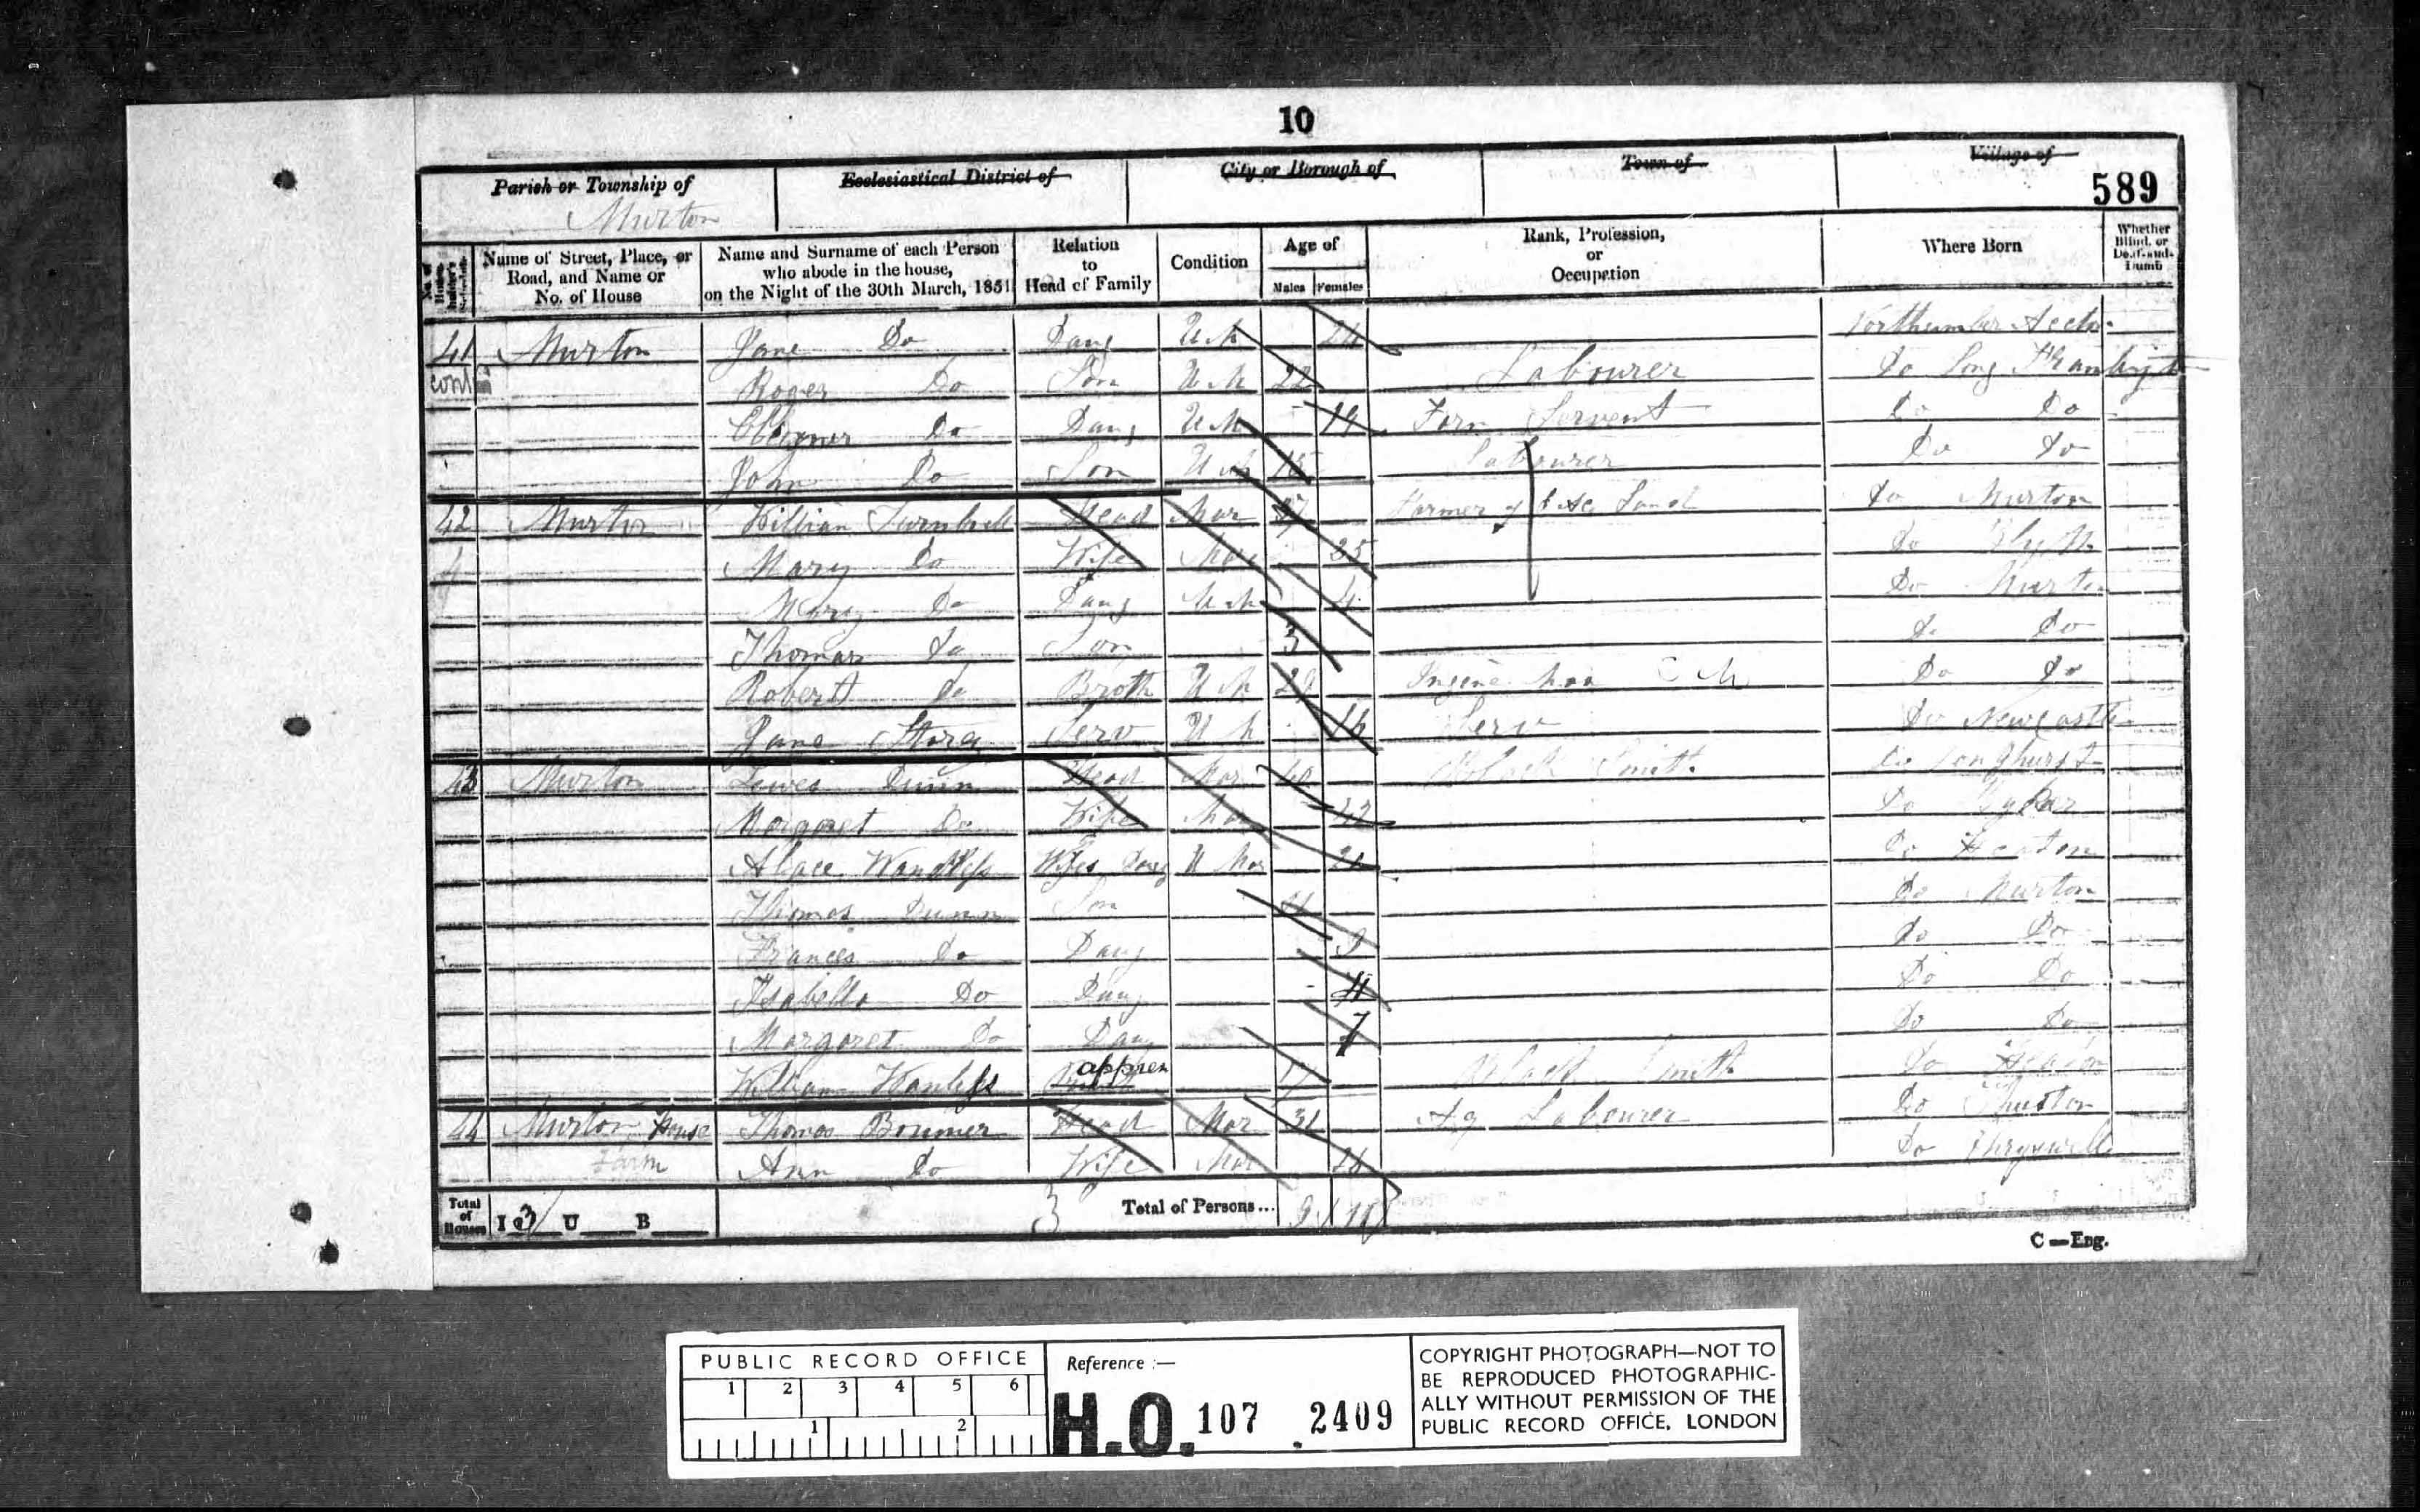 10
Parish or Township of
Murton
Ecclesiastical District of
City or Borough of
Town of
Village of
589
Name of Street, Place, or Road, and Name or No. of House
Name and Surname of each Person who abode in the house, on the Night of the 30th March, 1851
Relation to Head of Family
Condition
Age of
Males Females
Rank, Profession, or Occupation
Where Born
Whether Blind, or Deaf-and-Dumb
41 Murton Jane Do Daug U M 24
cont Roger Do Son U M 22 Labourer Do Long
Do Daug U M 19 Farm Servent Do Do
John Do Son U M 15 Labourer Do Do
42 Murton William Turnbull Head Mar 37 Farmer of Land Do Murton
Mary Do Wife Mar 35 Do Blyth
Mary Do Daug U M 4 Do Murton
Thomas Do Son 3 Do Do
Robert Do Broth U M 29 Do Do
Jane Storey Serv U M 16 Serv Do Newcastle
43 Murton Lewes Dunn Head Mar 40 Black Smith Do Longhurst
Margaret Do Wife Mar 42 Do
Alace Wife's Daug U Mar Do Heaton
Thomas Dunn Son 11 Do Murton
Frances Do Daug 9 Do Do
Isabella Do Daug Do Do
Margaret Do Daug 7 Do Do
William Wanless appren 17 Black Smith Do
44 Murton House Thomas Boumer Head Mar 31 Ag Labourer Do
Farm Ann Do Wife Mar Do
Total of Houses I 3 U B
3
Total of Persons... 9
C—Eng.
PUBLIC RECORD OFFICE
1 2 3 4 5 6
1 2
Reference :—
H.O. 107 2409
COPYRIGHT PHOTOGRAPH—NOT TO
BE REPRODUCED PHOTOGRAPHIC-
ALLY WITHOUT PERMISSION OF THE
PUBLIC RECORD OFFICE, LONDON